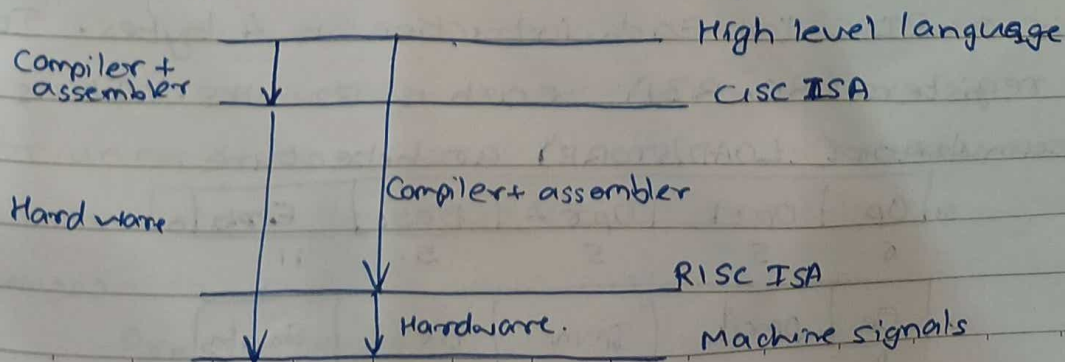 High level language
Compiler +
assembler
CISC ISA
Compiler + assembler
Hardware
RISC ISA
Hardware.
Machine signals